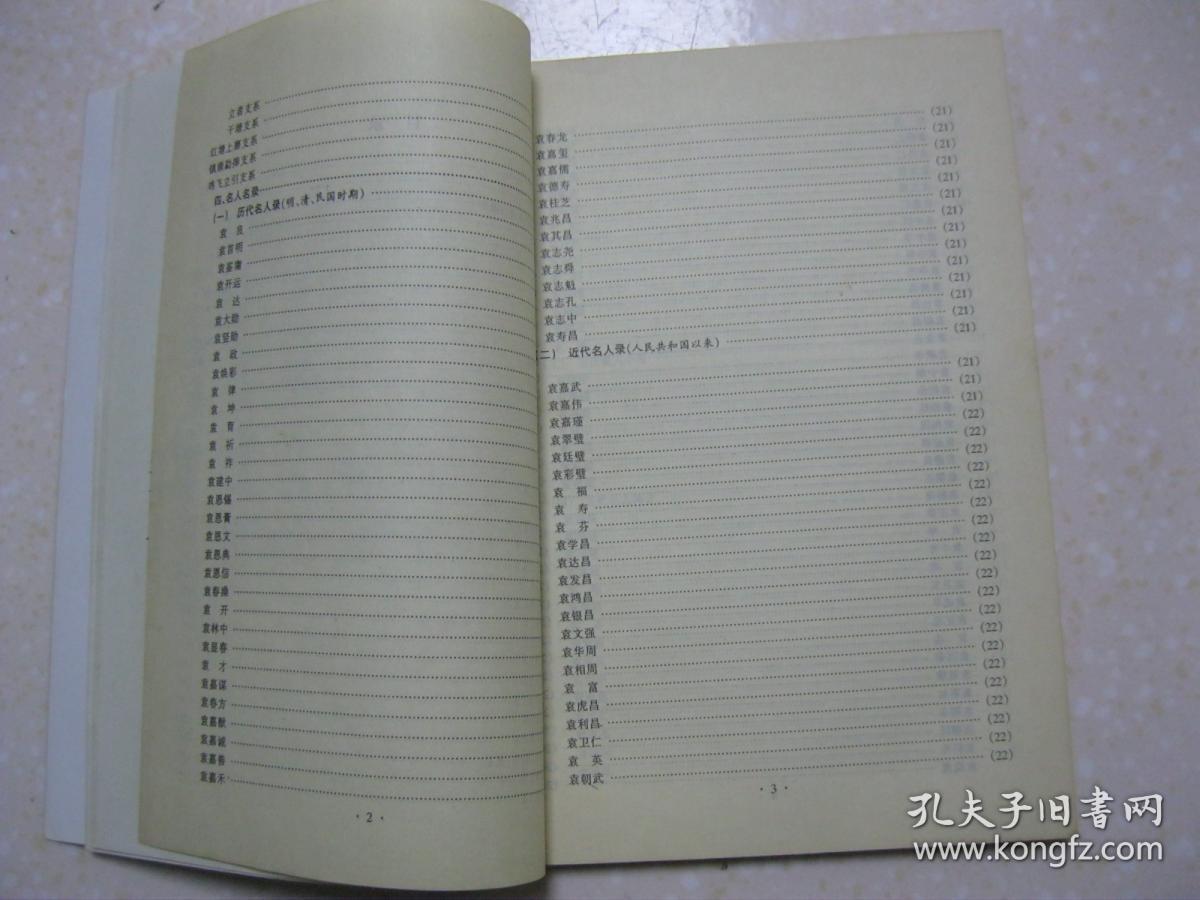 立者支系
干塘支系
红塘上寨支系
镇南勐排支系
四、名人名录
(一) 历代名人录(明、清、民国时期)
袁 良
袁首明
袁鉴庸
袁开运
袁 达
袁大勋
袁竖勋
袁 政
袁焕彩
袁 律
袁 坤
袁 育
袁 祈
袁 祚
袁建中
袁恩锡
袁恩膏
袁恩文
袁恩典
袁恩信
袁春操
袁 开
袁林中
袁显春
袁 才
袁嘉谋
袁春方
袁嘉猷
袁嘉诚
袁嘉善
袁嘉禾
· 2 ·
袁春龙 (21)
袁嘉玺 (21)
袁嘉儒 (21)
袁德寿 (21)
袁桂芝 (21)
袁兆昌 (21)
袁其昌 (21)
袁志尧 (21)
袁志舜 (21)
袁志魁 (21)
袁志孔 (21)
袁志中 (21)
袁寿昌 (21)
(二) 近代名人录(人民共和国以来) (21)
袁嘉武 (21)
袁嘉伟 (21)
袁嘉瑾 (21)
袁翠璧 (22)
袁廷璧 (22)
袁彩璧 (22)
袁 福 (22)
袁 寿 (22)
袁 芬 (22)
袁学昌 (22)
袁达昌 (22)
袁发昌 (22)
袁鸿昌 (22)
袁银昌 (22)
袁文强 (22)
袁华周 (22)
袁相周 (22)
袁 富 (22)
袁虎昌 (22)
袁利昌 (22)
袁卫仁 (22)
袁 英 (22)
袁朝武 (22)
· 3 ·
孔夫子旧书网
www.kongfz.com